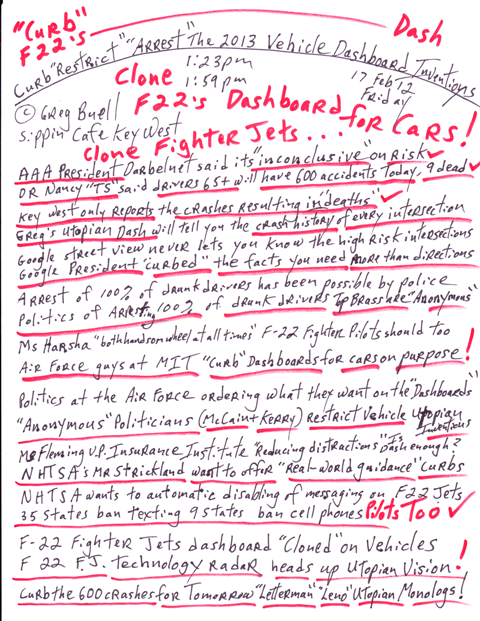 "Curb"
F22's
Dash
Curb "Restrict" "Arrest" The 2013 Vehicle Dashboard Inventions
1:23pm
Clone 1:59pm
17 Feb '12
Friday
© Greg Buell
F22's Dashboard
for Cars!
Sippin Cafe Key West
Clone Fighter Jets...
AAA President Darbelnet said its "inconclusive" on Risk
OR Nancy "TS" said drivers 65+ will have 600 accidents Today, 9 dead
Key West only reports the crashes resulting in "deaths"
Greg's Utopian Dash will tell you the crash history of every intersection
Google street view never lets you know the high Risk intersections
Google President "curbed" the facts you need more than directions
Arrest of 100% of drunk drivers has been possible by police
Politics of Arresting 100% of drunk drivers Top Brass are "Anonymous"
Ms Harsha "both hands on wheel at all times" F-22 Fighter Pilots should too
Air Force guys at MIT "Curb" Dashboards for cars on purpose!
Politics at the Air Force ordering what they want on the "Dashboards"
"Anonymous" Politicians (McCain + Kerry) Restrict Vehicle Utopian Inventions
Ms Fleming V.P. Insurance Institute "Reducing distractions" Is Dash enough?
NHTSA's Mr Strickland want to offer "Real-world guidance" curbs
NHTSA wants to automatic disabling of messaging on F22 Jets
35 States ban texting 9 states ban cell phones Pilots Too
F-22 Fighter Jets dashboard "Cloned" on Vehicles
F 22 F.J. Technology radar heads up Utopian Vision!
Curb the 600 crashes for Tomorrow "Letterman" "Leno" Utopian Monologs!